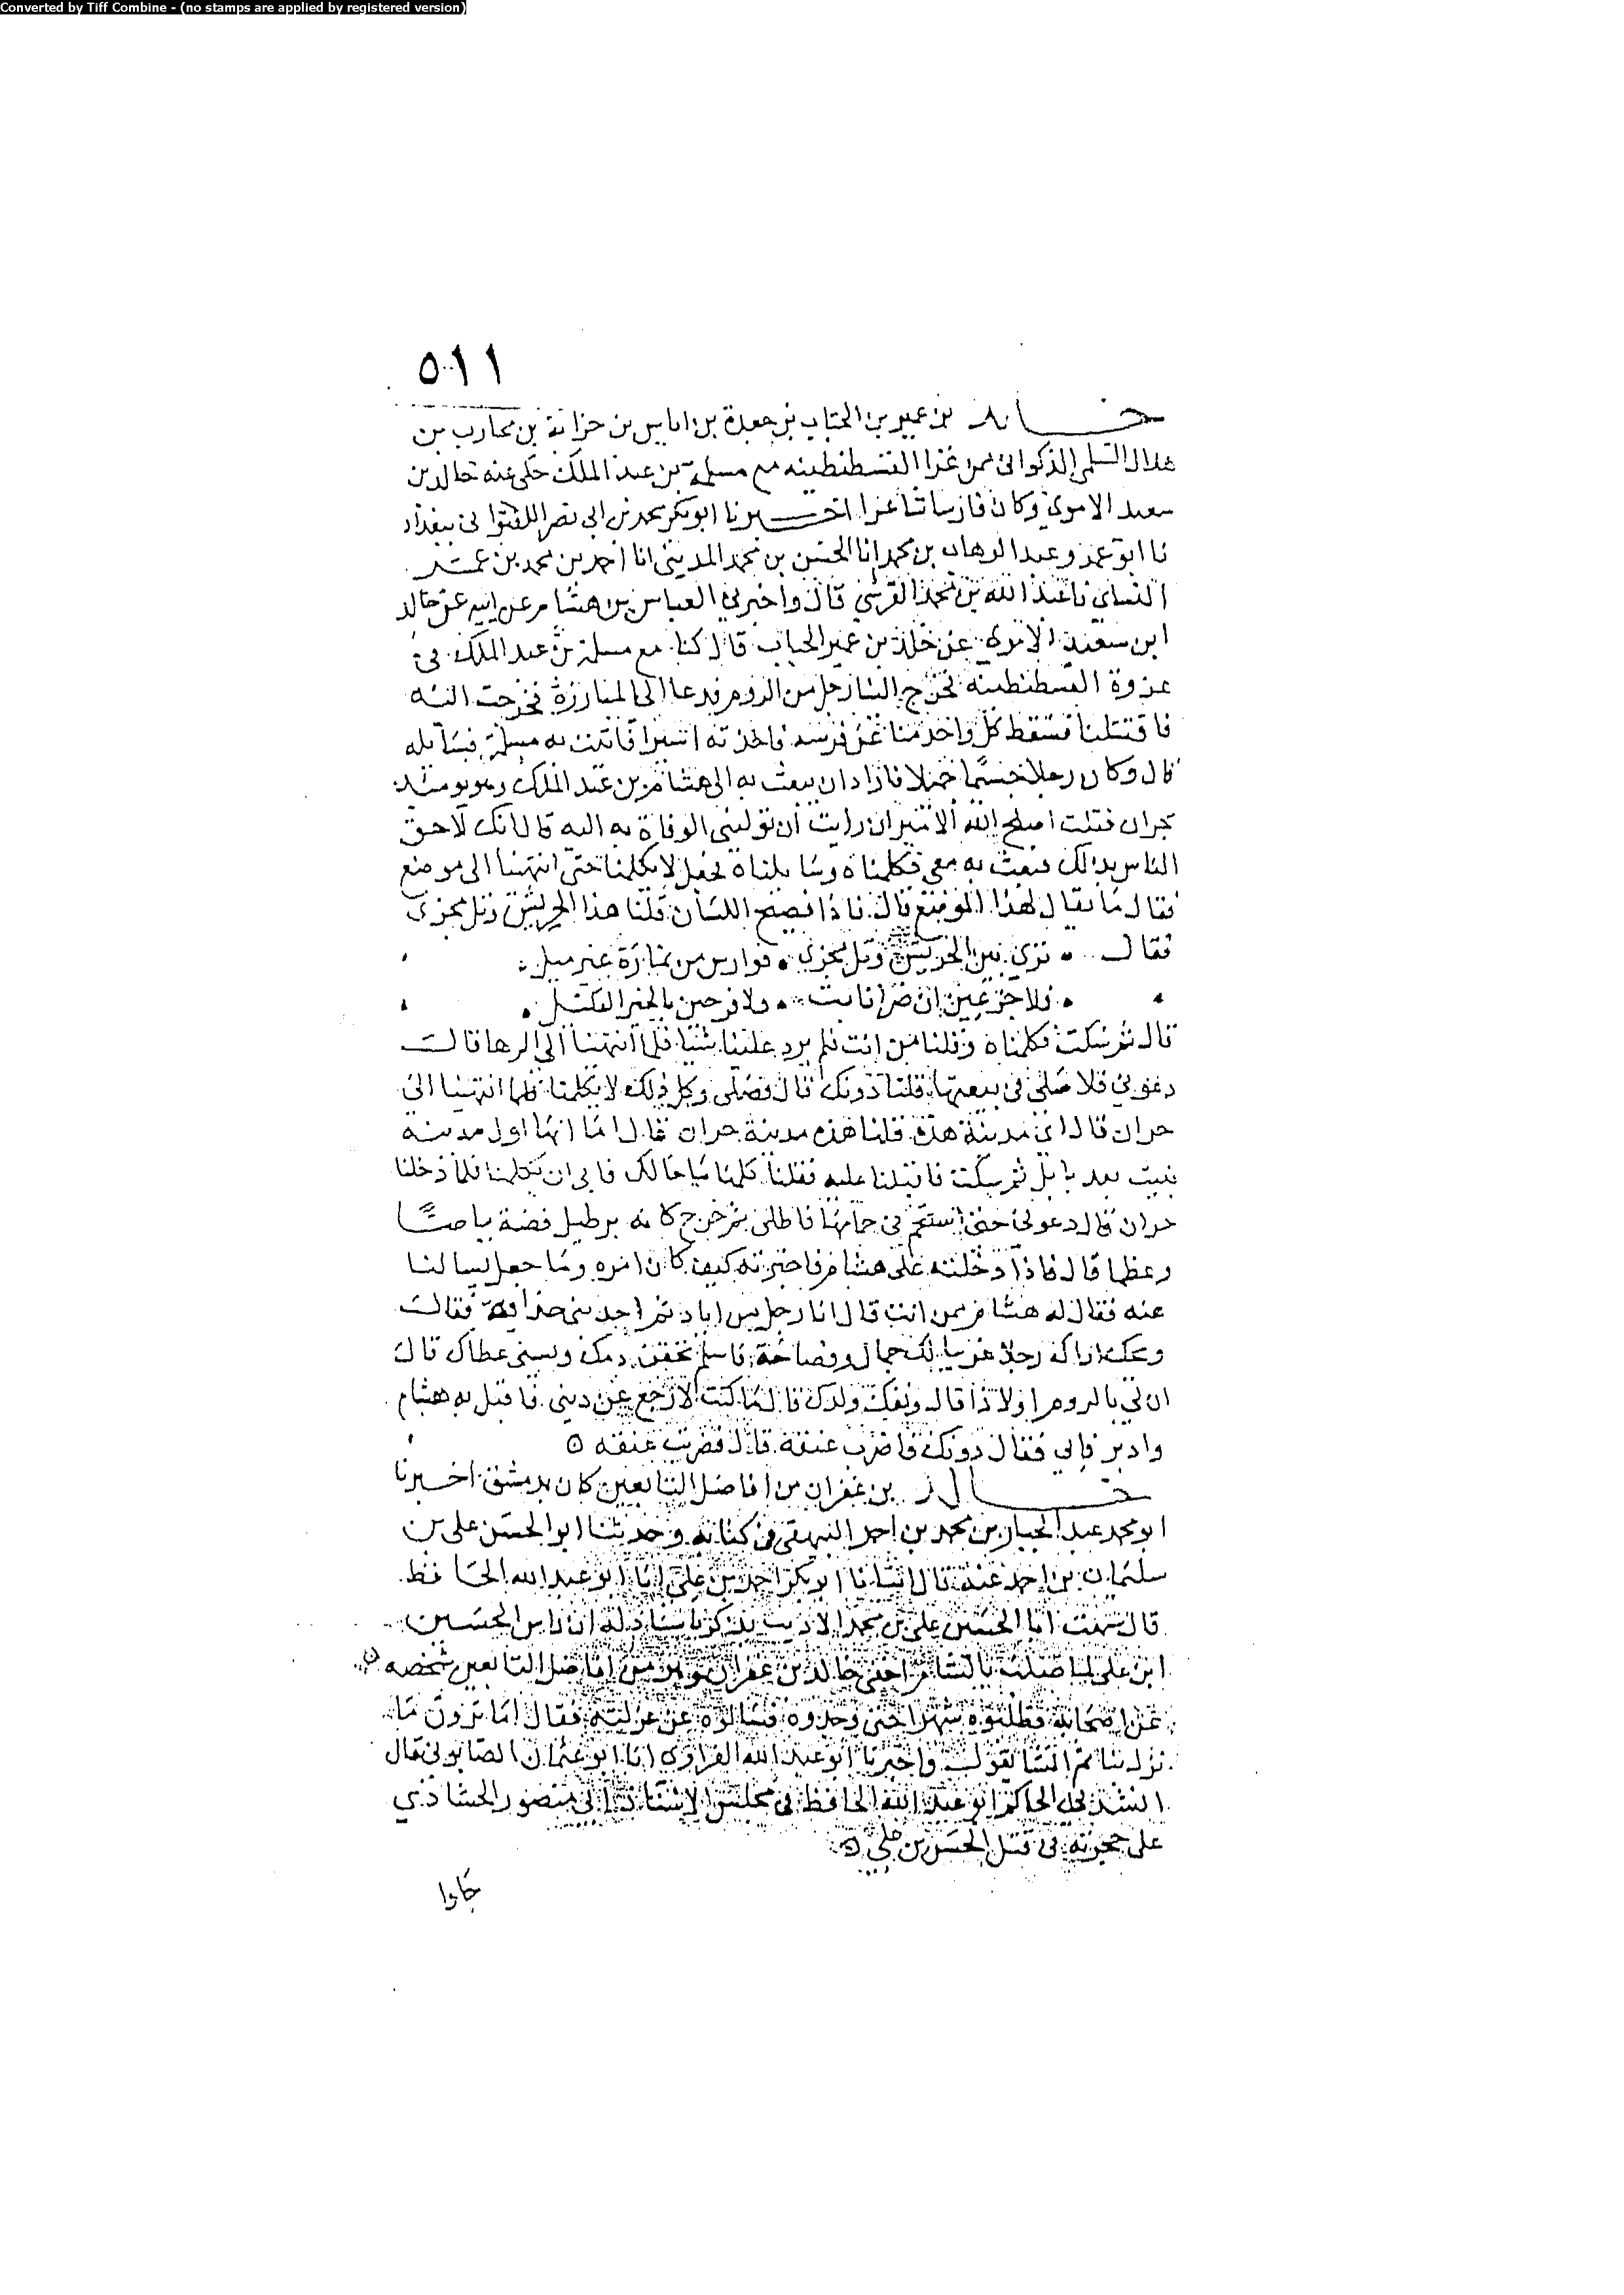 Converted by Tiff Combine - (no stamps are applied by registered version)
٥١١
خالد بن عمير بن الحباب بن جعدة بن اياس بن حزابة بن محارب بن
هلال السلمي الذكواني ممن غزا القسطنطينه مع مسلمة بن عبد الملك حكى عنه خالد بن
سعيد الاموي وكان فارسا شاعرا اخبرنا ابو بكر محمد بن ابي نصر اللفتواني ببغداد
نا ابو عمرو عبد الوهاب بن محمد انا الحسن بن محمد المديني انا احمد بن محمد بن عمر
اللنباني نا عبد الله بن محمد القرشي قال واخبرني العباس بن هشام عن ابيه عن خالد
ابن سعيد الاموي عن خالد بن عمير الحباب قال كنا مع مسلمة بن عبد الملك في
غزوة القسطنطينه فخرج الينا رجل من الروم فدعا الى المبارزة فخرجت اليه
فاقتتلنا فسقط كل واحد منا عن فرسه فاخذته اسيرا فاتيت به مسلمة فسآيله
قال وكان رجلا جسيما جميلا فاراد ان يبعث به الى هشام بن عبد الملك وهو يومئذ
بحران فقلت اصلح الله الامير ان رايت ان توليني الوفادة به اليه قال انك لاحق
الناس بذلك فبعث به معي فكلمناه وسايلناه فجعل لا يكلمنا حتى انتهينا الى موضع
فقال ما يقال لهذا الموضع قال فاذا فصيح اللسان قلنا هذا الحريش وتل محزى
فقال نزى بين الحريش وتل محزى فوارس من نمارة غير ميل
فلا جزعين ان ضرا نابت ولا فرحين بالخير القليل
قال ثم سكت فكلمناه وقلنا من انت فلم يرد علينا شيئا فلما انتهينا الى الرها قال
دعوني فلاصلي في بيعتها قلنا دونك قال فصلى وكل ذلك لا يكلمنا فلما انتهينا الى
حران قال اي مدينة هذه قلنا هذه مدينة حران قال اما انها اول مدينة
بنيت بعد بابل ثم سكت فاقبلنا عليه فقلنا كلمنا ما حالك فابى ان يكلمنا فلما دخلنا
حران قال دعوني حتى استحم في حمامها فاطلى ثم خرج كانه برطيل فضة بياضا
وعظما قال فاذا دخلته على هشام فاخبرته كيف كان امره وما جعل يسالنا
عنه فقال له هشام ممن انت قال انا رجل من اياد ثم احد بني حذافة فقال
ويحك اراك رجلا عربيا لك جمال وفصاحة فاسلم نحقن دمك ونسني عطاك قال
ان لي بالروم اولادا قال ونفك ولدك قال ما كنت لارجع عن ديني فاقبل به هشام
وادبر فابى فقال دونك فاضرب عنقه قال فضربت عنقه
خالد بن غفران من افاضل التابعين كان بدمشق اخبرنا
ابو محمد عبد الجبار بن محمد بن احمد البيهقي في كتابه وحدثنا ابو الحسن علي بن
سليمان بن احمد عنه قال انبانا ابو بكر احمد بن علي انا ابو عبد الله الحافظ
قال سمعت ابا الحسين علي بن محمد الاديب يذكر باسناد له ان راس الحسين
ابن علي لما صلب بالشام اخفى خالد بن غفران وهو من افاضل التابعين شخصه
عن اصحابه فطلبوه شهرا حتى وجدوه فسالوه عن عزلته فقال اما ترون ما
نزل بنا ثم انشا يقول واخبرنا ابو عبد الله الفراوي انا ابو عثمان الصابوني قال
انشدني الحاكم ابو عبد الله الحافظ في مجلس الاستاذ ابي منصور الحشاذي
على حجرته في قتل الحسين بن علي
جاوا